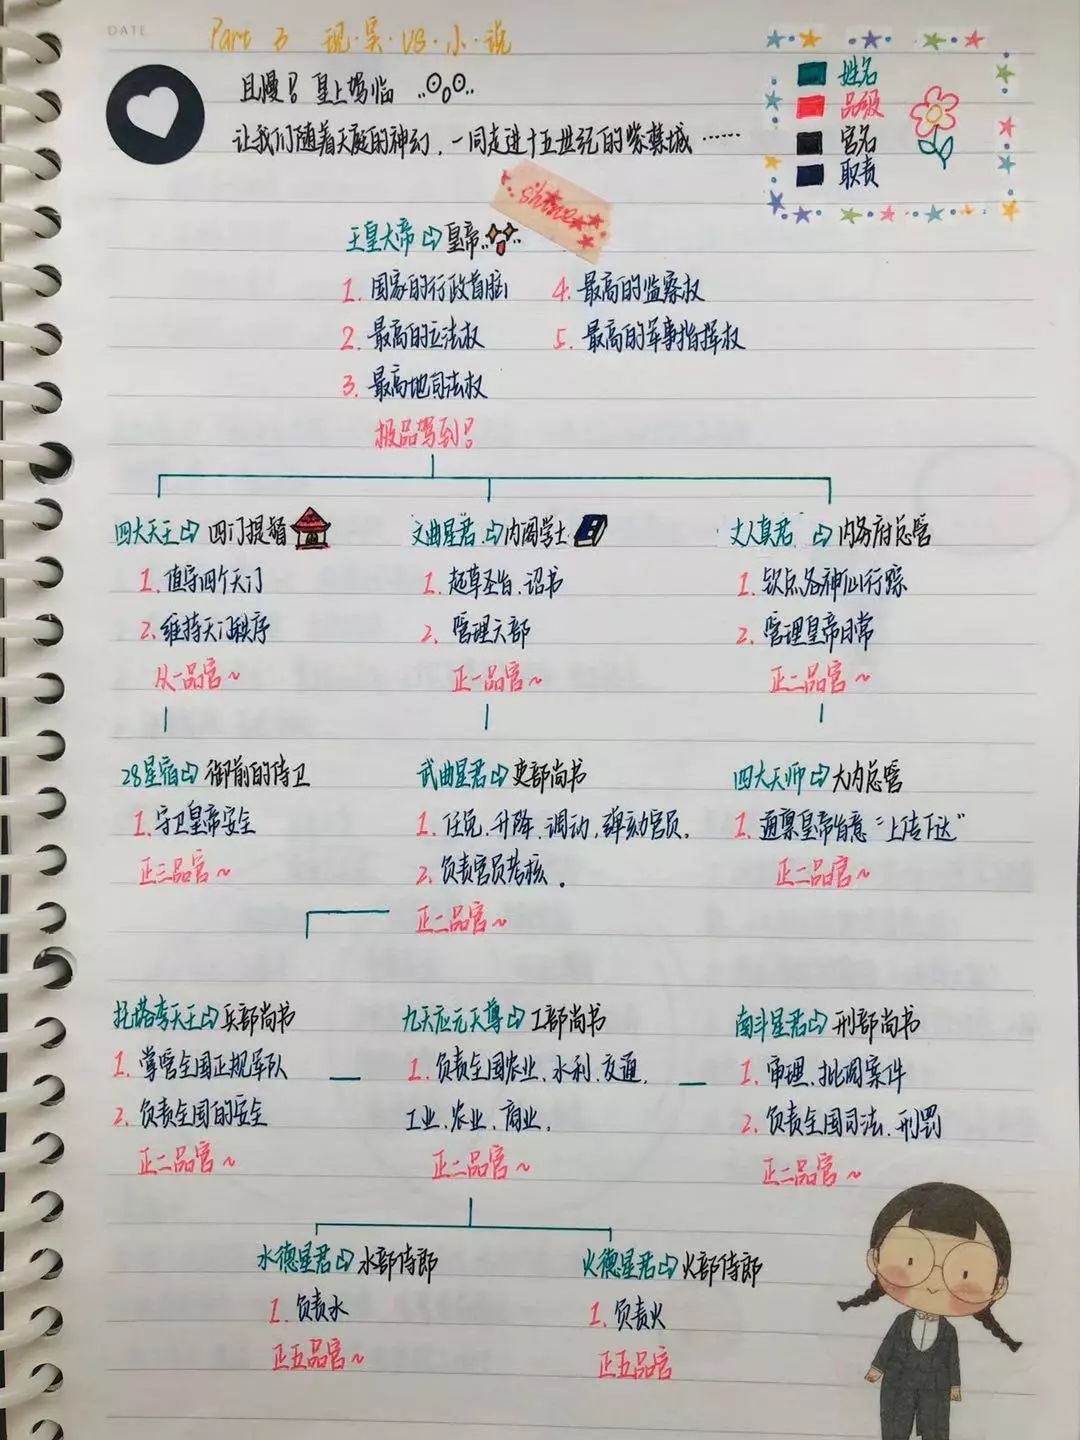 DATE
Part 3 现·实·VS·小·说
且慢！皇上驾临
让我们随着天庭的神幻，一同走进十五世纪的紫禁城……
姓名
品级
官名
职责
shine
玉皇大帝⇨皇帝
1. 国家的行政首脑
4. 最高的监察权
2. 最高的立法权
5. 最高的军事指挥权
3. 最高地司法权
极品驾到！
四大天王⇨四门提督
1. 值守四个天门
2. 维持天门秩序
从一品官～
文曲星君⇨内阁学士
1. 起草圣旨、诏书
2. 管理六部
正一品官～
丈人真君⇨内务府总管
1. 钦点各神仙行踪
2. 管理皇帝日常
正二品官～
28星宿⇨御前的侍卫
1. 守卫皇帝安全
正三品官～
武曲星君⇨吏部尚书
1. 任免、升降、调动、弹劾官员。
2. 负责官员考核。
正二品官～
四大天师⇨大内总管
1. 通禀皇帝旨意“上传下达”
正二品官～
托塔李天王⇨兵部尚书
1. 掌管全国正规军队
2. 负责全国的安全
正二品官～
九天应元天尊⇨工部尚书
1. 负责全国农业、水利、交通、
工业、农业、商业、
正二品官～
南斗星君⇨刑部尚书
1. 审理、批阅案件
2. 负责全国司法、刑罚
正二品官～
水德星君⇨水部侍郎
1. 负责水
正五品官～
火德星君⇨火部侍郎
1. 负责火
正五品官